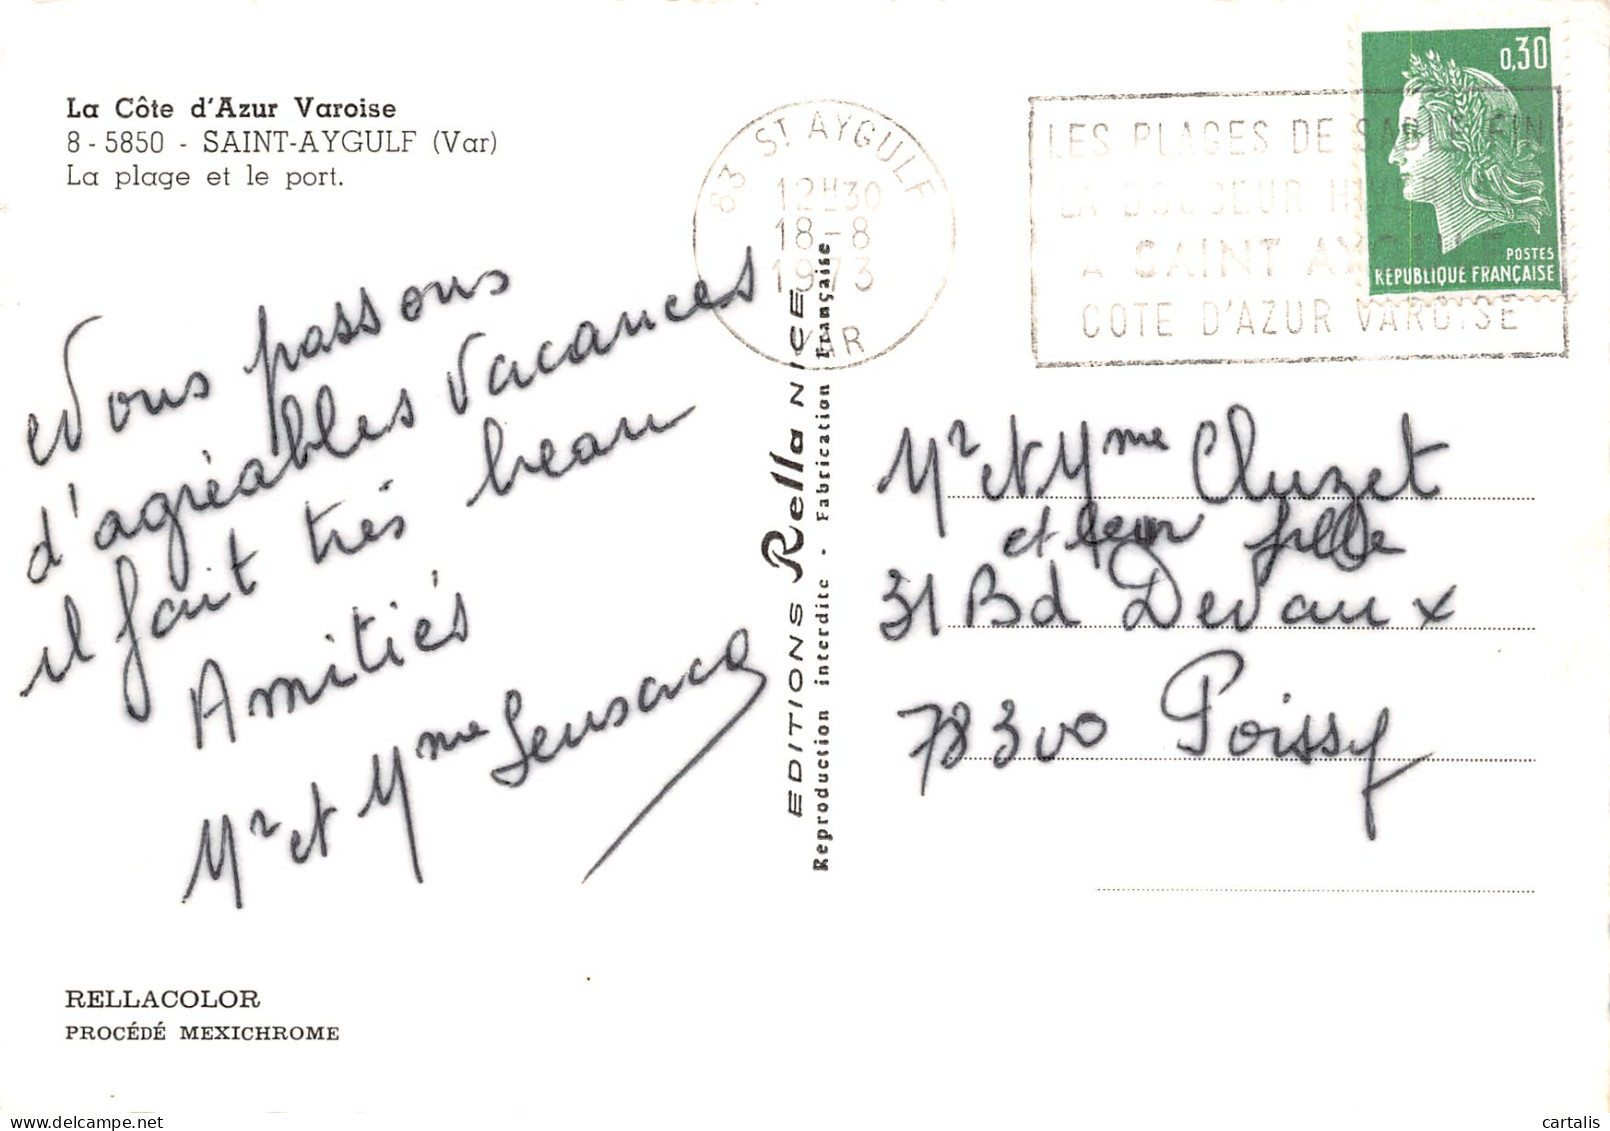 La Côte d'Azur Varoise
8-5850 - SAINT-AYGULF (Var)
La plage et le port.
Nous passons
d'agréables vacances
il fait très beau
Amitiés
Mr et Mme
RELLACOLOR
PROCÉDÉ MEXICHROME
EDITIONS Rella NICE
Reproduction interdite - Fabrication Française
83 ST AYGULF
12H30
18-8
1973
VAR
LES PLAGES DE SABLE FIN
LA DOUCEUR
A SAINT AYGULF
COTE D'AZUR VAROISE
0,30
POSTES
REPUBLIQUE FRANÇAISE
Mr et Mme Cluzet
et leur fille
31 Bd Devaux
78300 Poissy
cartalis